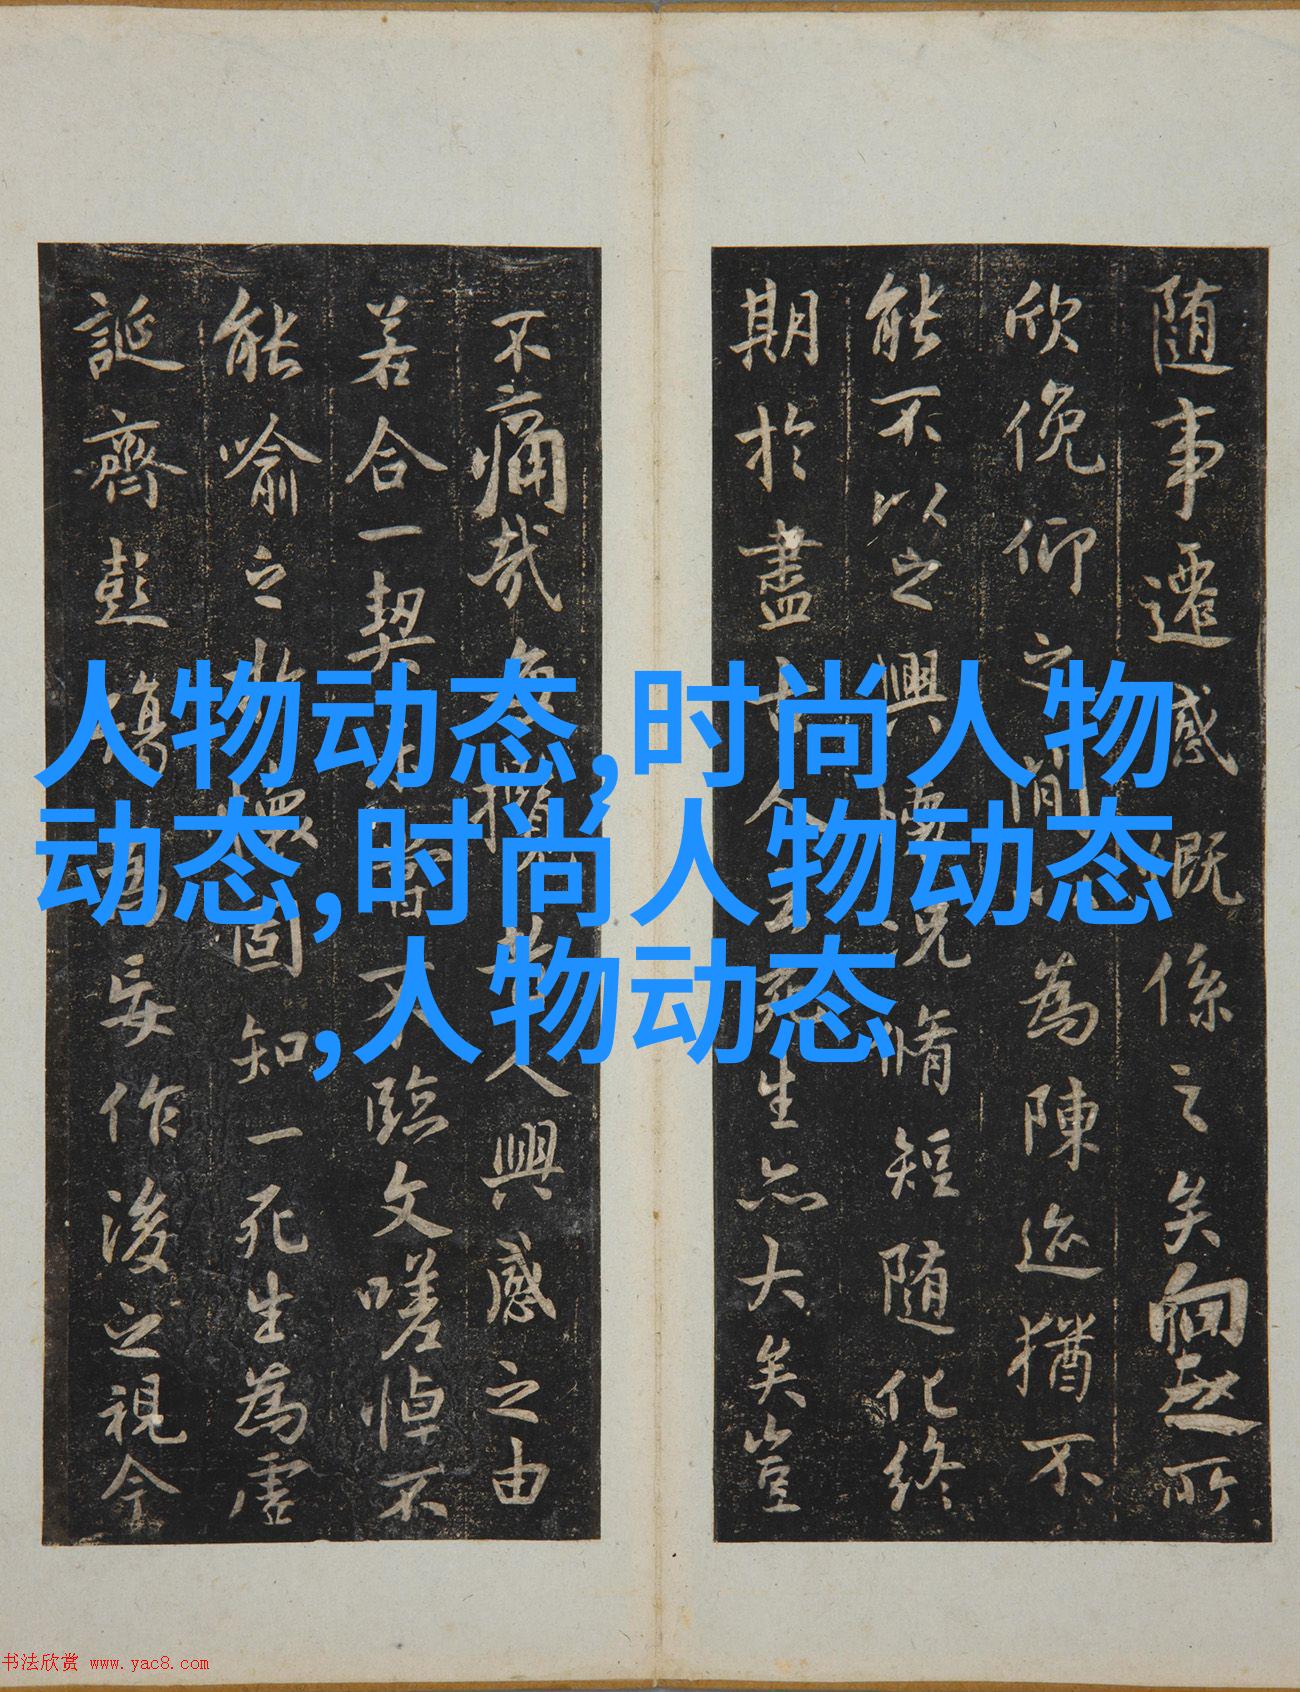 随事遷感慨係之矣向之所
欣俛仰之間以為陳迹猶不
能不以之興懷況脩短随化終
期於盡古人云死生亦大矣豈
不痛哉每攬昔人興感之由
若合一契未嘗不臨文嗟悼不
能喻之於懷固知一死生為虛
誕齊彭殤為妄作後之視今
人物动态,时尚人物
动态,时尚人物动态
,人物动态
书法欣赏 www.yac8.com